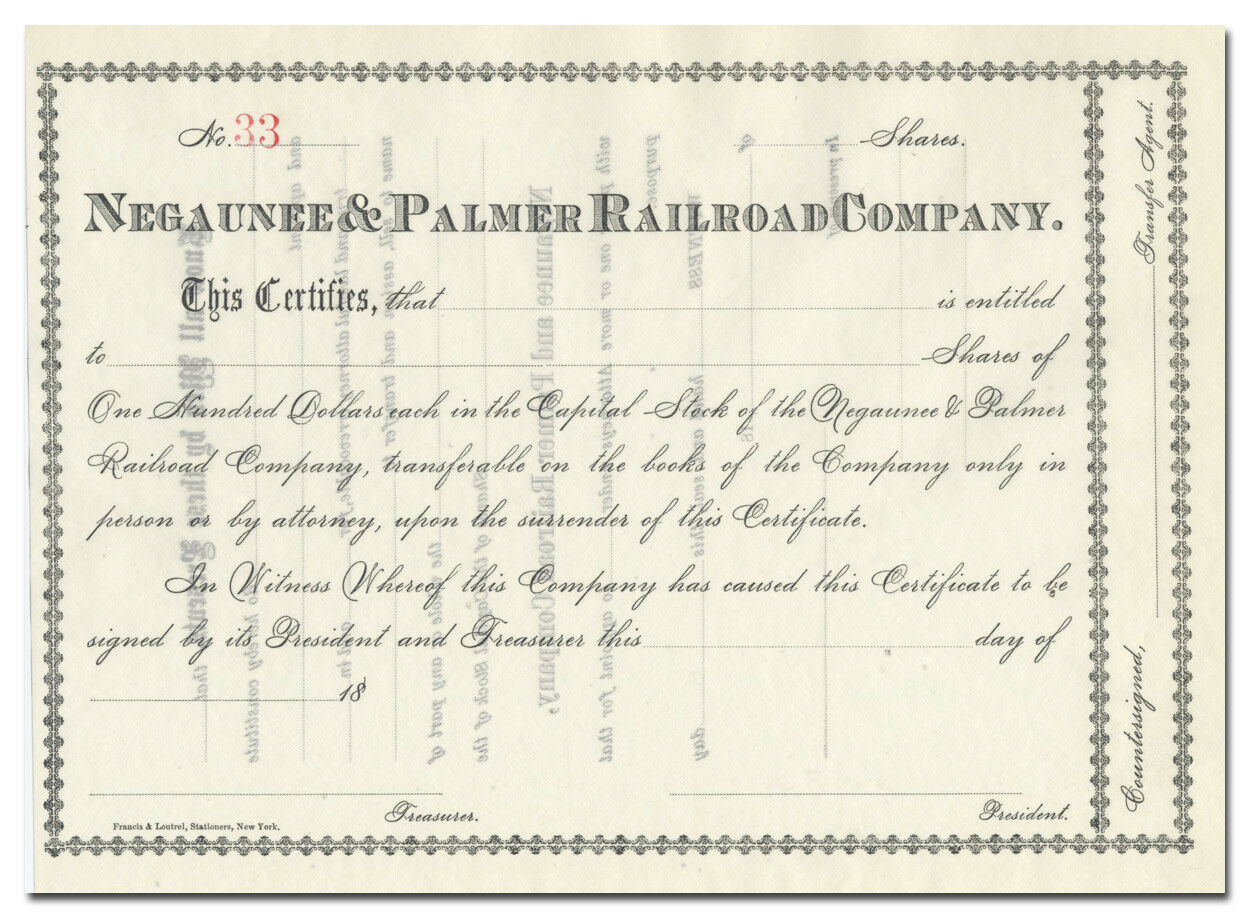 No. 33 Shares.
NEGAUNEE & PALMER RAILROAD COMPANY.
This Certifies, that is entitled
to Shares of
One Hundred Dollars each in the Capital Stock of the Negaunee & Palmer
Railroad Company, transferable on the books of the Company only in
person or by attorney, upon the surrender of this Certificate.
In Witness Whereof this Company has caused this Certificate to be
signed by its President and Treasurer this day of
18
Treasurer. President.
Francis & Loutrel, Stationers, New York.
Countersigned, Transfer Agent.